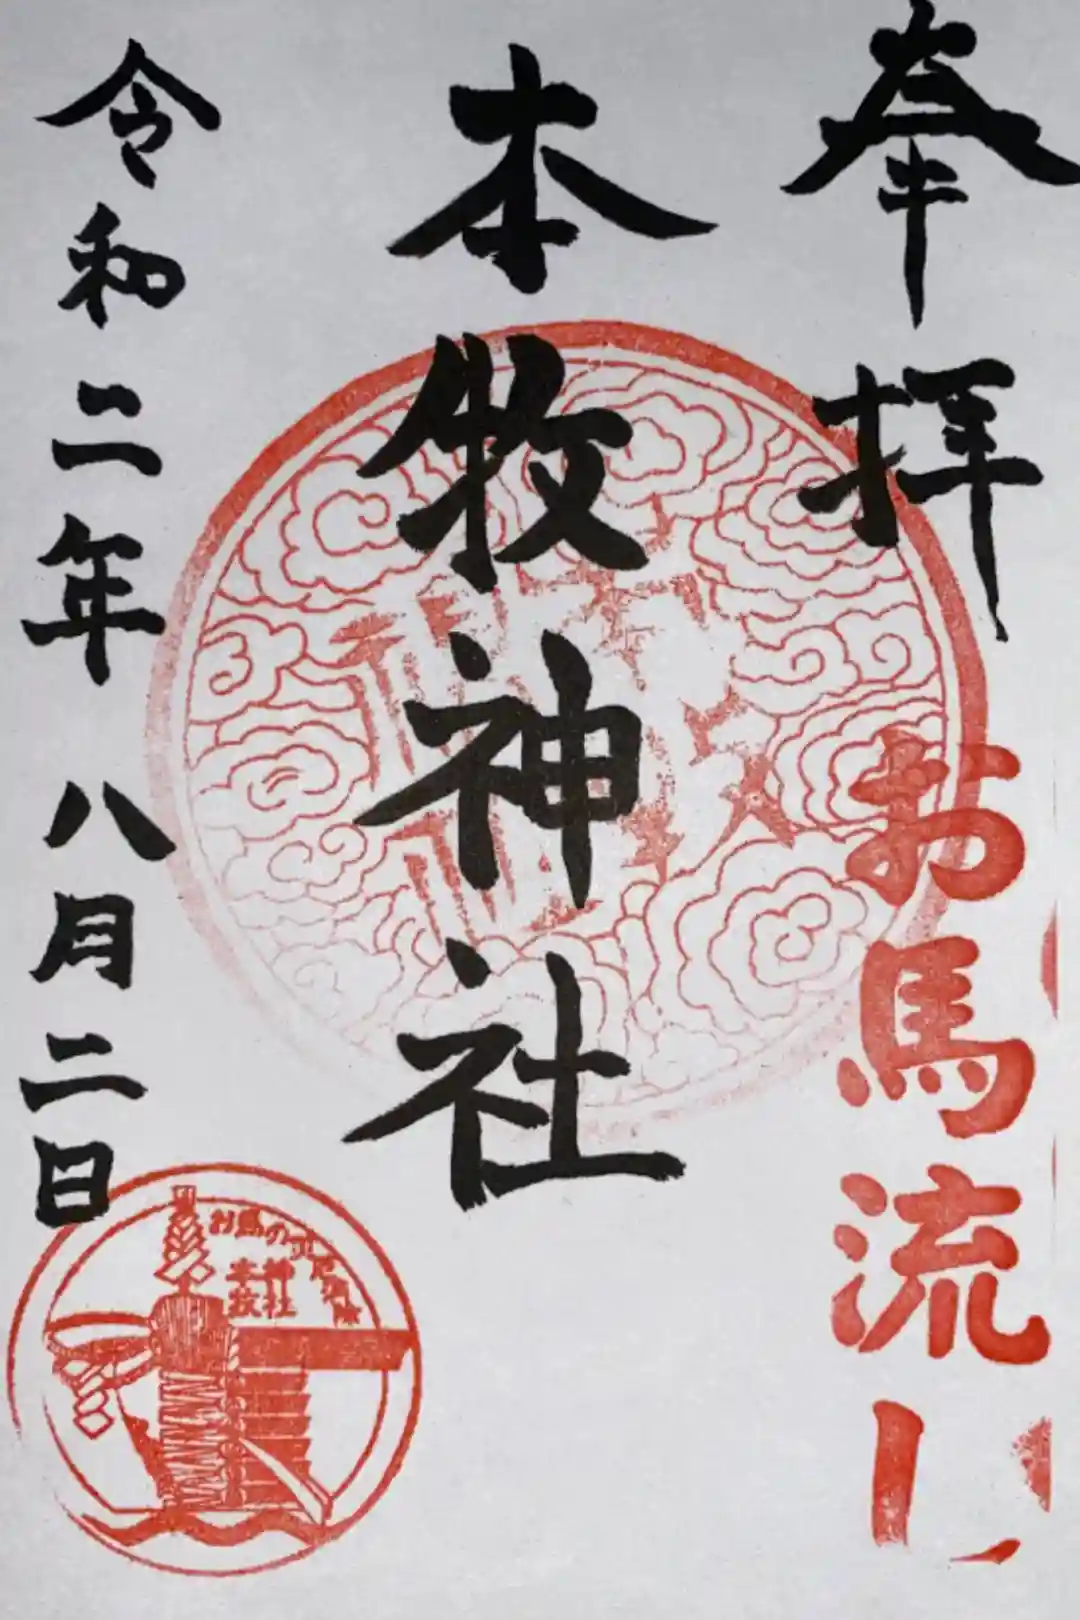 奉拝
お馬流し
本牧神社
令和二年 八月二日
本牧
神社